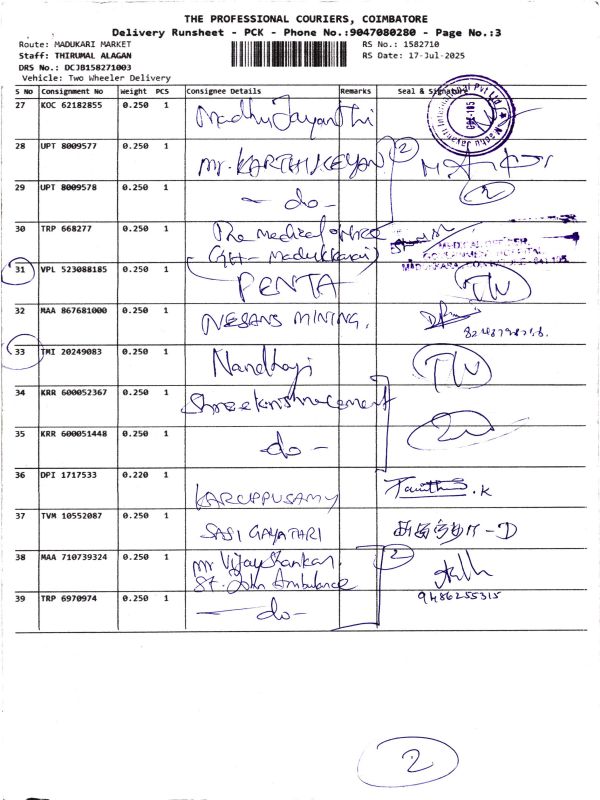 THE PROFESSIONAL COURIERS, COIMBATORE
Delivery Runsheet - PCK - Phone No.:9047080280 - Page No.:3
Route: MADUKARI MARKET RS No.: 1582710
Staff: THIRUMAL ALAGAN RS Date: 17-Jul-2025
DRS No.: DCJB158271003
Vehicle: Two Wheeler Delivery
S No Consignment No Weight PCS Consignee Details Remarks Seal & Signature
27 KOC 62182855 0.250 1 Madhu Jayanthi
28 UPT 8009577 0.250 1 Mr. KARTHIKEYAN 2
29 UPT 8009578 0.250 1 - do - 2
30 TRP 668277 0.250 1 The medical office
(GH- Madukkarai)
MEDICAL OFFICER,
GOVERNMENT HOSPITAL
31 VPL 523088185 0.250 1 PENTA
32 MAA 867681000 0.250 1 NESANS MINING.
33 TMI 20249083 0.250 1 Nandhaji
34 KRR 600052367 0.250 1 Shreekrishnacement
35 KRR 600051448 0.250 1 - do -
36 DPI 1717533 0.220 1 KARUPPUSAMY
37 TVM 10552087 0.250 1 SASI GAYATHRI
38 MAA 710739324 0.250 1 Mr Vijay Shankar. 2
St. John Ambulance
39 TRP 6970974 0.250 1 - do - 9486255315
2